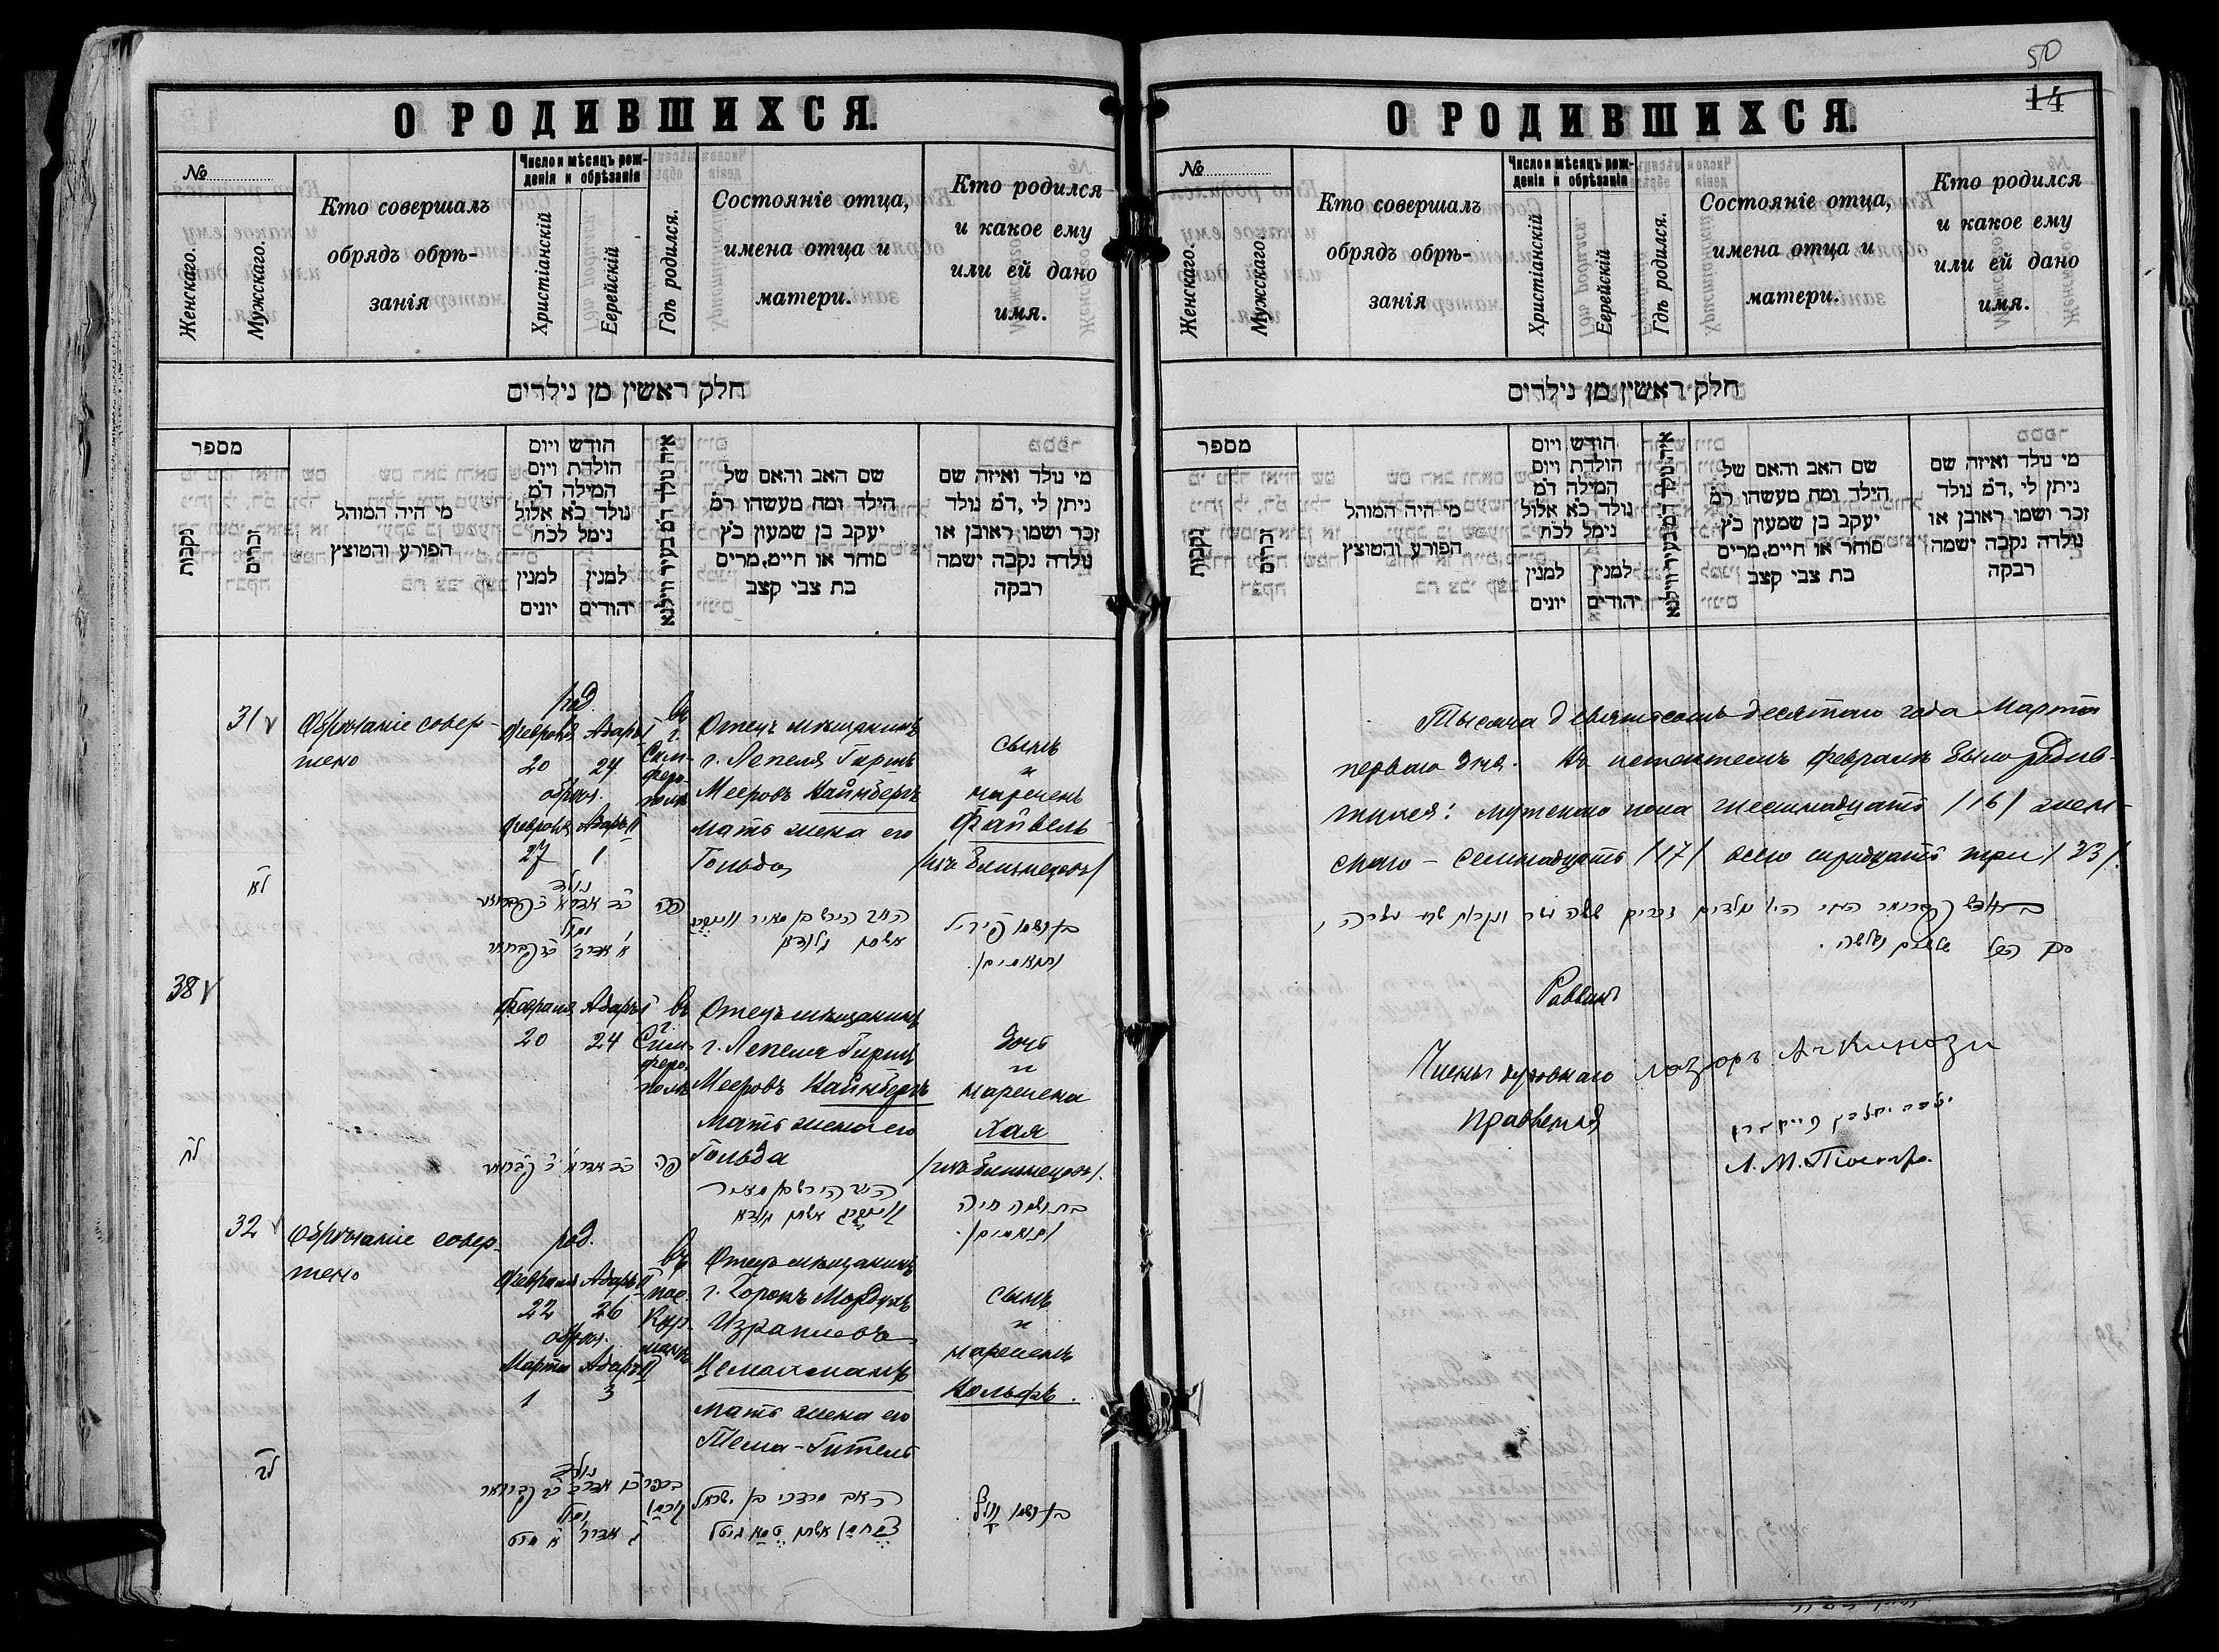 О РОДИВШИХСЯ.
№
Женскаго.
Мужскаго.
Кто совершалъ
обрядъ обрѣ-
занія
Число и мѣсяцъ рож-
денія и обрѣзанія
Христіанскій
Еерейскій
Гдѣ родился.
Состояніе отца,
имена отца и
матери.
Кто родился
и какое ему
или ей дано
имя.
חלק ראשין מן נילדים
מספר
נקבות
זכרים
מי היה המוהל
הפורע והטוצץ
הודש ויום
הולדת ויום
המילה דמ
נולד כא אלול
נימל לכח
למנין
יונים
למנין
יהודים
איה נולד דמ בעיר ווילנא
שם האב והאם של
הילד ומה מעשהו רמ
יעקב בן שמעון כץ
סוחר או חיים,מרים
בת צבי קצב
מי נולד ואיזה שם
ניתן לי ,דמ נולד
זכר ושמו ראובן או
נולדה נקבה ישמה
רבקה
31
Обрѣзаніе совер-
шено
род.
Февраля Адаръ I
20 24
обрѣз.
Февраля Адаръ II
27 1
въ
г.
Сим-
феро-
полѣ
Отецъ мѣщанинъ
г. Лепеля Гиршъ
Мееровъ Вайнбергъ
Мать жена его
Гольда
сынъ
и
нареченъ
Файвель
/изъ близнецовъ/
לא
נולד
כד אדר א
נימול
א אדר ב
פה
האב הירש בן מאיר
אשתו גולדא
בן ושמו פייוויל
/תאומים/
38
Февраля Адаръ I
20 24
въ
г.
Сим-
феро-
полѣ
Отецъ мѣщанинъ
г. Лепеля Гиршъ
Мееровъ Вайнбергъ
Мать жена его
Гольда
дочь
и
наречена
Хая
/изъ близнецовъ/.
לח
כד אדר א
פה
האב הירש בן מאיר
אשתו גולדא
בת ושמה חיה
/תאומים/.
32
Обрѣзаніе совер-
шено
род.
Февраля Адаръ
22 26
обрѣз.
Марта Адаръ II
1 3
въ
пос.
Кур-
манъ
Отецъ мѣщанинъ
г. Хоронъ Мордухъ
Израилевъ
Цемахманъ
Мать жена его
Тема-Гитель
сынъ
и
нареченъ
Вольфъ.
לב
נולד
נימול
האב מרדכי בן ישראל
צמחמן אשתו טעמא גיטל
בן ושמו וולף.
50
14
О РОДИВШИХСЯ.
№
Женскаго.
Мужскаго.
Кто совершалъ
обрядъ обрѣ-
занія
Число и мѣсяцъ рож-
денія и обрѣзанія
Христіанскій
Еерейскій
Гдѣ родился.
Состояніе отца,
имена отца и
матери.
Кто родился
и какое ему
или ей дано
имя.
חלק ראשין מן נילדים
מספר
נקבות
זכרים
מי היה המוהל
הפורע והטוצץ
הודש ויום
הולדת ויום
המילה דמ
נולד כא אלול
נימל לכח
למנין
יונים
למנין
יהודים
איה נולד דמ בעיר ווילנא
שם האב והאם של
הילד ומה מעשהו רמ
יעקב בן שמעון כץ
סוחר או חיים,מרים
בת צבי קצב
מי נולד ואיזה שם
ניתן לי ,דמ נולד
זכר ושמו ראובן או
נולדה נקבה ישמה
רבקה
Тысяча девятьсотъ десятаго года Марта
перваго дня. Въ истекшемъ февралѣ было родив-
шихся: мужскаго пола шестнадцать /16/ жен-
скаго – семнадцать /17/ всего тридцать три /33/.
סך הכל שלשים ושלשה.
Раввинъ
Члены духовнаго
правленія
Л. М.